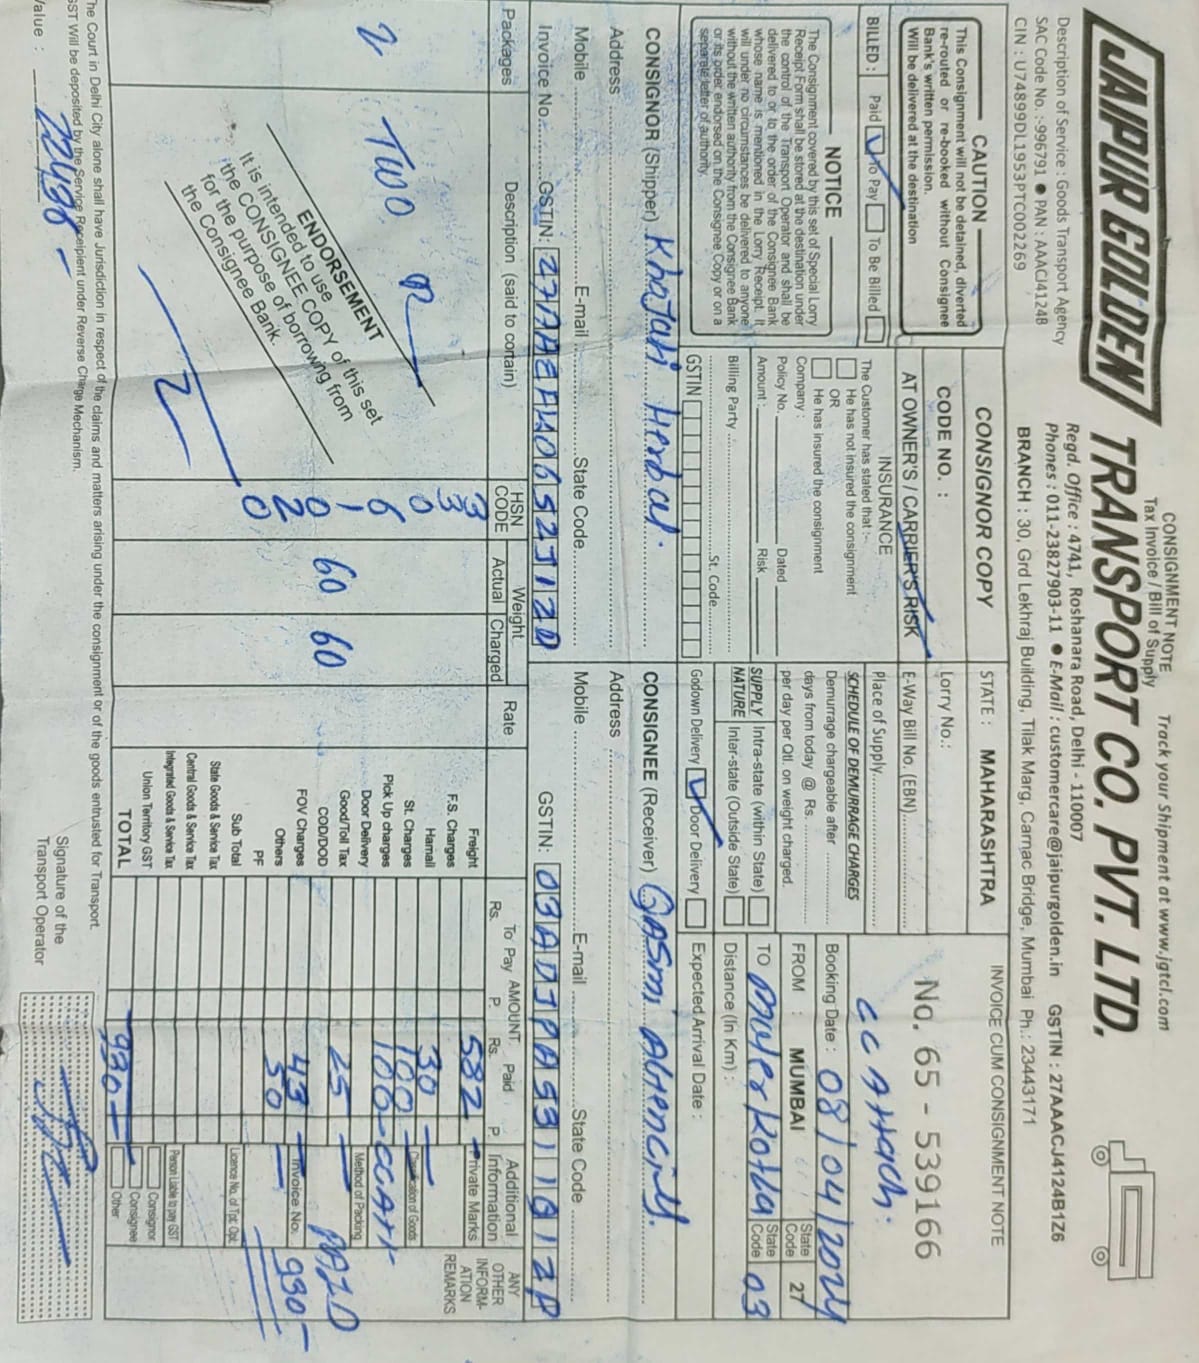 CONSIGNMENT NOTE
Tax Invoice / Bill of Supply
Track your Shipment at www.jgtcl.com
JAIPUR GOLDEN TRANSPORT CO. PVT. LTD.
Regd. Office : 4741, Roshanara Road, Delhi - 110007
Phones : 011-23827903-11 ● E-Mail : customercare@jaipurgolden.in GSTIN : 27AAACJ4124B1Z6
BRANCH : 30, Grd Lekhraj Building, Tilak Marg, Carnac Bridge, Mumbai Ph.: 23443171
Description of Service : Goods Transport Agency
SAC Code No. :-996791 ● PAN : AAACJ4124B
CIN : U74899DL1953PTC002269
CAUTION
This Consignment will not be detained, diverted
re-routed or re-booked without Consignee
Bank's written permission.
Will be delivered at the destination
BILLED : Paid To Pay To Be Billed
NOTICE
The Consignment covered by this set of Special Lorry
Receipt Form shall be stored at the destination under
the control of the Transport Operator and shall be
delivered to or to the order of the Consignee Bank
whose name is mentioned in the Lorry Receipt. It
will under no circumstances be delivered to anyone
without the written authority from the Consignee Bank
or its order endorsed on the Consignee Copy or on a
separate letter of authority.
CONSIGNOR COPY
CODE NO. :
AT OWNER'S / CARRIER'S RISK
INSURANCE
The Customer has stated that :-
He has not insured the consignment
OR
He has insured the consignment
Company :
Policy No. Dated
Amount : Risk
Billing Party
St. Code
GSTIN
STATE : MAHARASHTRA
Lorry No.:
E-Way Bill No. (EBN)
Place of Supply
SCHEDULE OF DEMURRAGE CHARGES
Demurrage chargeable after
days from today @ Rs.
per day per Qtl. on weight charged.
SUPPLY NATURE
Intra-state (within State)
Inter-state (Outside State)
Godown Delivery Door Delivery
INVOICE CUM CONSIGNMENT NOTE
No. 65 - 539166
CC Attach.
Booking Date : 08/04/2024
FROM : MUMBAI State Code 27
TO Muler Kotla State Code 03
Distance (In Km) :
Expected Arrival Date :
CONSIGNOR (Shipper) Khojati Herbal.
Address
Mobile E-mail State Code
Invoice No. GSTIN: 27AAEFK0652J1ZD
CONSIGNEE (Receiver) Qasmi Attenciall.
Address
Mobile E-mail State Code
GSTIN: 03ADJPA5931 1Q1ZP
Packages Description (said to contain) HSN CODE Weight Actual Charged Rate
2 TWO 33061020 60 60
ENDORSEMENT
It is intended to use
the CONSIGNEE COPY of this set
for the purpose of borrowing from
the Consignee Bank.
AMOUNT
To Pay Rs. P. Paid Rs. P
Additional Information
ANY OTHER INFORMATION REMARKS
Freight 582
F.S. Charges
Hamali 30
St. Charges 100
Pick Up charges 100
Door Delivery
Good/Toll Tax 25
COD/DOD
FOV Charges 43
Others 50
PF
Sub Total
State Goods & Service Tax
Central Goods & Service Tax
Integrated Goods & Service Tax
Union Territory GST
TOTAL 930-
Private Marks
Classification of Goods
CCAtt
Method of Packing
Invoice No.
Licence No. of Tpt. Opt.
Person Liable to pay GST
Consignor
Consignee
Other
PAID
930-
The Court in Delhi City alone shall have Jurisdiction in respect of the claims and matters arising under the consignment or of the goods entrusted for Transport.
GST Will be deposited by the Service Receipient under Reverse Charge Mechanism.
Value : 22498-
Signature of the
Transport Operator